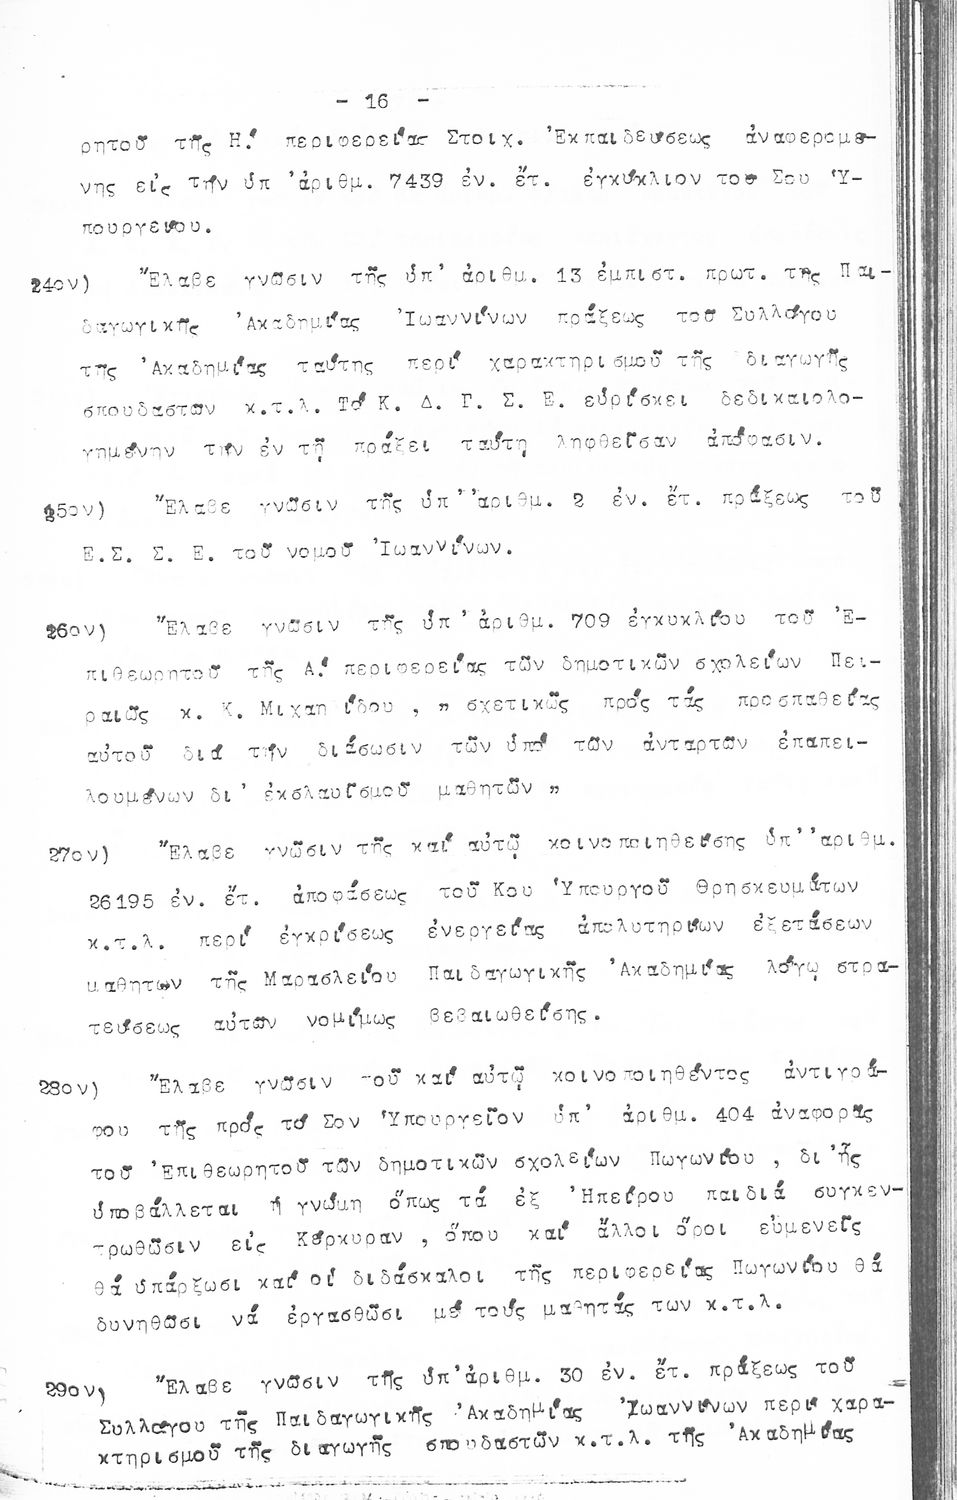 - 16 -
ρητοῦ τῆς Η! περιφερείας Στοιχ. Ἐκπαιδεύσεως ἀναφερομέ-
νης εἰς τήν ὑπ 'ἀριθμ. 7439 ἐν. ἔτ. ἐγκύκλιον του Σου Ὑ-
πουργείου.
24ον) Ἔλαβε γνῶσιν τῆς ὑπ' ἀριθμ. 13 ἐμπιστ. πρωτ. της Παι-
δαγωγικῆς Ἀκαδημίας Ἰωαννίνων πράξεως τοῦ Συλλόγου
τῆς Ἀκαδημίας ταύτης περί χαρακτηρισμοῦ τῆς διαγωγῆς
σπουδαστῶν κ.τ.λ. Τό Κ. Δ. Γ. Σ. Ε. εὑρίσκει δεδικαιολο-
γημένην τήν ἐν τῇ πράξει ταύτῃ ληφθεῖσαν ἀπόφασιν.
25ον) Ἔλαβε γνῶσιν τῆς ὑπ' 'ἀριθμ. 2 ἐν. ἔτ. πράξεως τοῦ
Ε.Σ. Σ. Ε. τοῦ νομοῦ Ἰωαννίνων.
26ον) Ἔλαβε γνῶσιν τῆς ὑπ' ἀριθμ. 709 ἐγκυκλίου τοῦ Ἐ-
πιθεωρητοῦ τῆς Α! περιφερείας τῶν δημοτικῶν σχολείων Πει-
ραιῶς κ. Κ. Μιχαηλίδου , " σχετικῶς πρός τάς προσπαθείας
αὐτοῦ διά τήν διάσωσιν τῶν ὑπό τῶν ἀνταρτῶν ἐπαπει-
λουμένων δι' ἐκσλαυϊσμοῦ μαθητῶν "
27ον) Ἔλαβε γνῶσιν τῆς καί αὐτῷ κοινοποιηθείσης ὑπ' 'αριθμ.
26195 ἐν. ἔτ. ἀποφάσεως τοῦ Κου Ὑπουργοῦ Θρησκευμάτων
κ.τ.λ. περί ἐγκρίσεως ἐνεργείας ἀπολυτηρίων ἐξετάσεων
μαθητῶν τῆς Μαρασλείου Παιδαγωγικῆς Ἀκαδημίας λόγῳ στρα-
τεύσεως αὐτῶν νομίμως βεβαιωθείσης.
28ον) Ἔλαβε γνῶσιν τοῦ καί αὐτῷ κοινοποιηθέντος ἀντιγρά-
φου τῆς πρός τό Σον Ὑπουργεῖον ὑπ' ἀριθμ. 404 ἀναφορᾶς
τοῦ Ἐπιθεωρητοῦ τῶν δημοτικῶν σχολείων Πωγωνίου , δι'ἧς
ὑποβάλλεται ἡ γνώμη ὅπως τά ἐξ Ἠπείρου παιδιά συγκεν-
τρωθῶσιν εἰς Κέρκυραν , ὅπου καί ἄλλοι ὅροι εὐμενεῖς
θά ὑπάρξωσι καί οἱ διδάσκαλοι τῆς περιφερείας Πωγωνίου θά
δυνηθῶσι νά ἐργασθῶσι μέ τούς μαθητάς των κ.τ.λ.
29ον) Ἔλαβε γνῶσιν τῆς ὑπ'ἀριθμ. 30 ἐν. ἔτ. πράξεως τοῦ
Συλλόγου τῆς Παιδαγωγικῆς Ἀκαδημίας Ἰωαννίνων περί χαρα-
κτηρισμοῦ τῆς διαγωγῆς σπουδαστῶν κ.τ.λ. τῆς Ἀκαδημίας